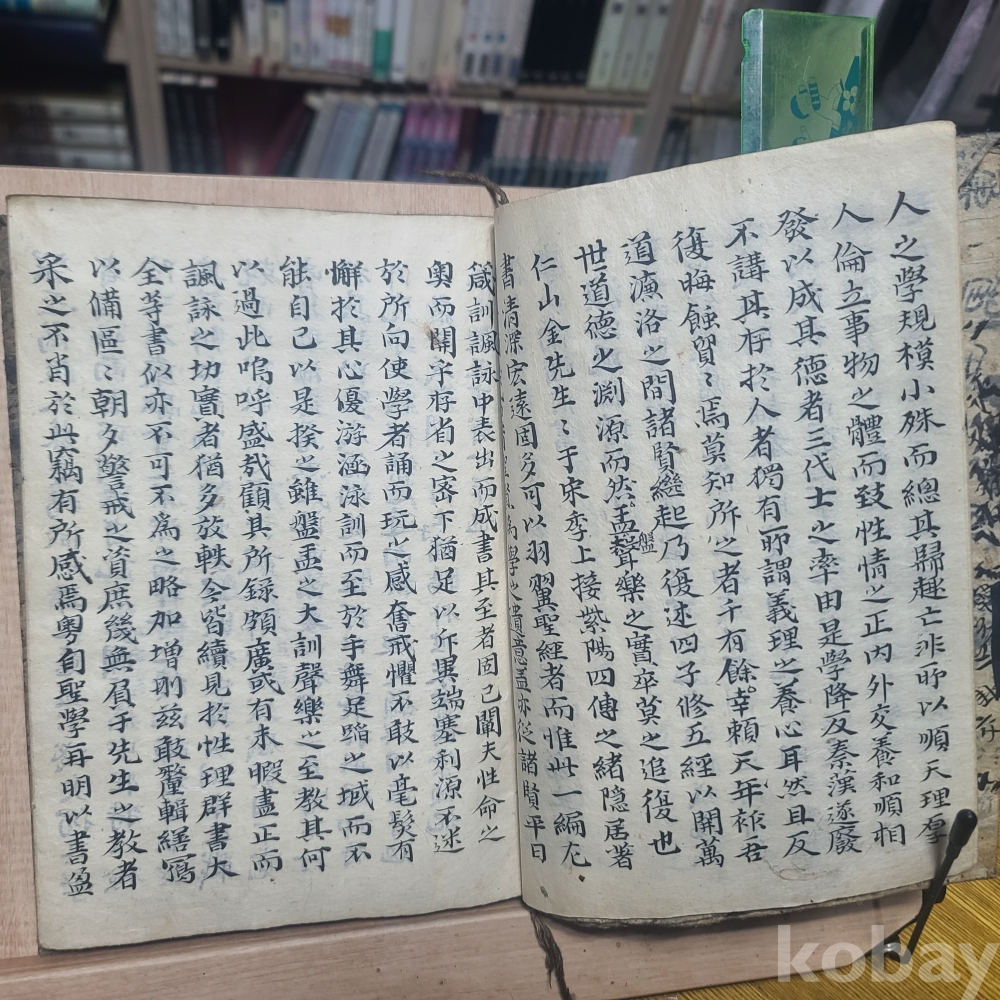 人之學規模小殊而總其歸趣亡非所以順天理厚
人倫立事物之體而致性情之正內外交養和順相
發以成其德者三代士之率由是學降及秦漢遂廢
不講其存於人者獨有所謂義理之養心耳然且反
復晦蝕貿〻焉莫知所之者千有餘幸賴天年祚君
道濂洛之間諸賢繼起乃復述四子修五經以開萬
世道德之淵源而然盤盂聲樂之實卒莫之追復也
仁山金先生〻于宋季上接紫陽四傳之緒隱居著
書清深宏遠固多可以羽翼聖經者而惟此一編尤
爲學之遺意盖亦從諸賢平日
箴訓諷詠中表出而成書其至者固已闡夫性命之
奧而關乎存省之密下猶足以斥異端塞利源不迷
於所向使學者誦而玩之感奮戒懼不敢以毫髮有
懈於其心優游涵泳訓而至於手舞足蹈之域而不
能自已以是揆之雖盤盂之大訓聲樂之至教其何
以過此嗚呼盛哉顧其所錄頗廣或有未暇盡正而
諷詠之切實者猶多放軼今皆續見於性理群書大
全等書似亦不可不爲之略加增刪玆敢釐輯繕寫
以備區〻朝夕警戒之資庶幾無負于先生之教者
朶之不肖於此竊有所感焉粤自聖學再明以書盈
kobay